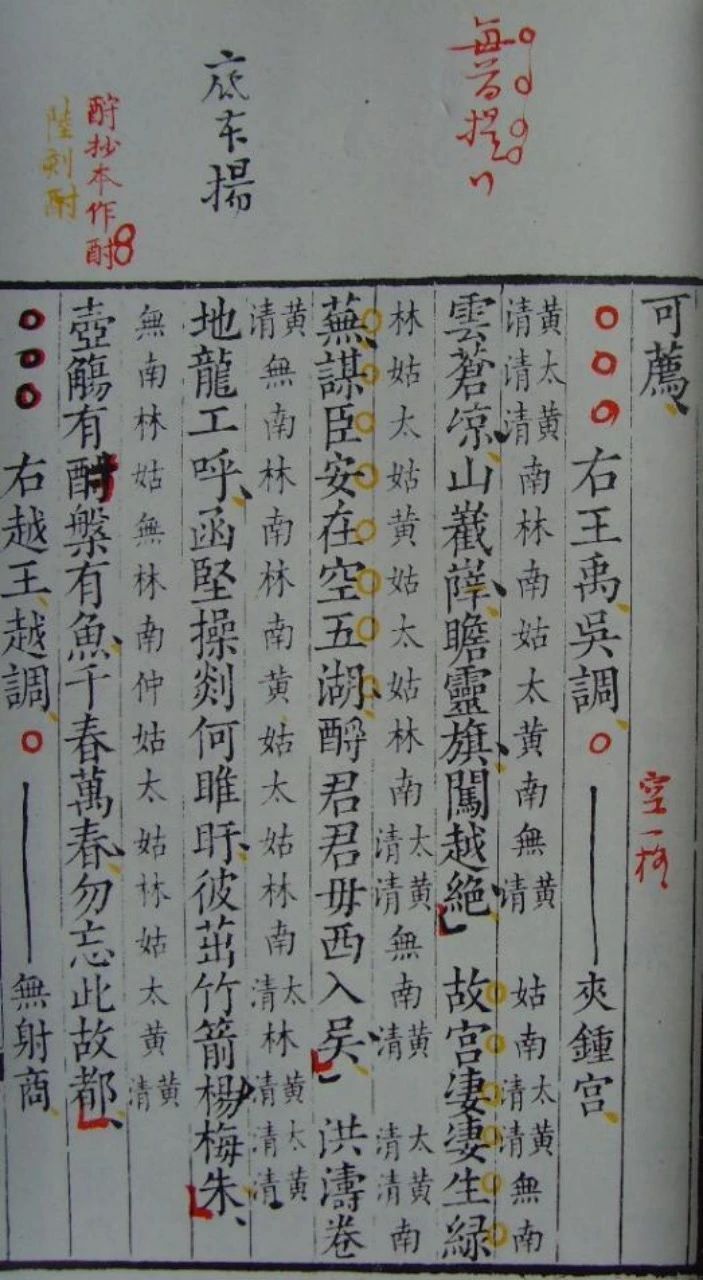 每首提行
底本揚
酹抄本作酎
陸刻酎
可薦 空一格
右王禹吳調 夾鍾宫
黃清 太清 黃清 南 林 南 姑 太 黃 南 無 黃清 姑 南 太清 黃清 無 南
雲蒼凉山嶻嶭瞻靈旗闖越絶 故宫凄凄生緑
林 姑 太 姑 黃 姑 太 姑 林 南 太清 黃清 無 南 黃清 太清 黃清 南
蕪謀臣安在空五湖酹君君毋西入吳 洪濤卷
黃清 無 南 林 南 林 南 黃 姑 太 姑 林 南 太清 林 黃清 太清 黃清
地龍工呼函堅操剡何睢盱彼茁竹箭楊梅朱
無 南 林 姑 無 林 南 仲 姑 太 姑 林 姑 太 黃 黃清
壺觴有酹槃有魚千春萬春勿忘此故都
右越王越調 無射商